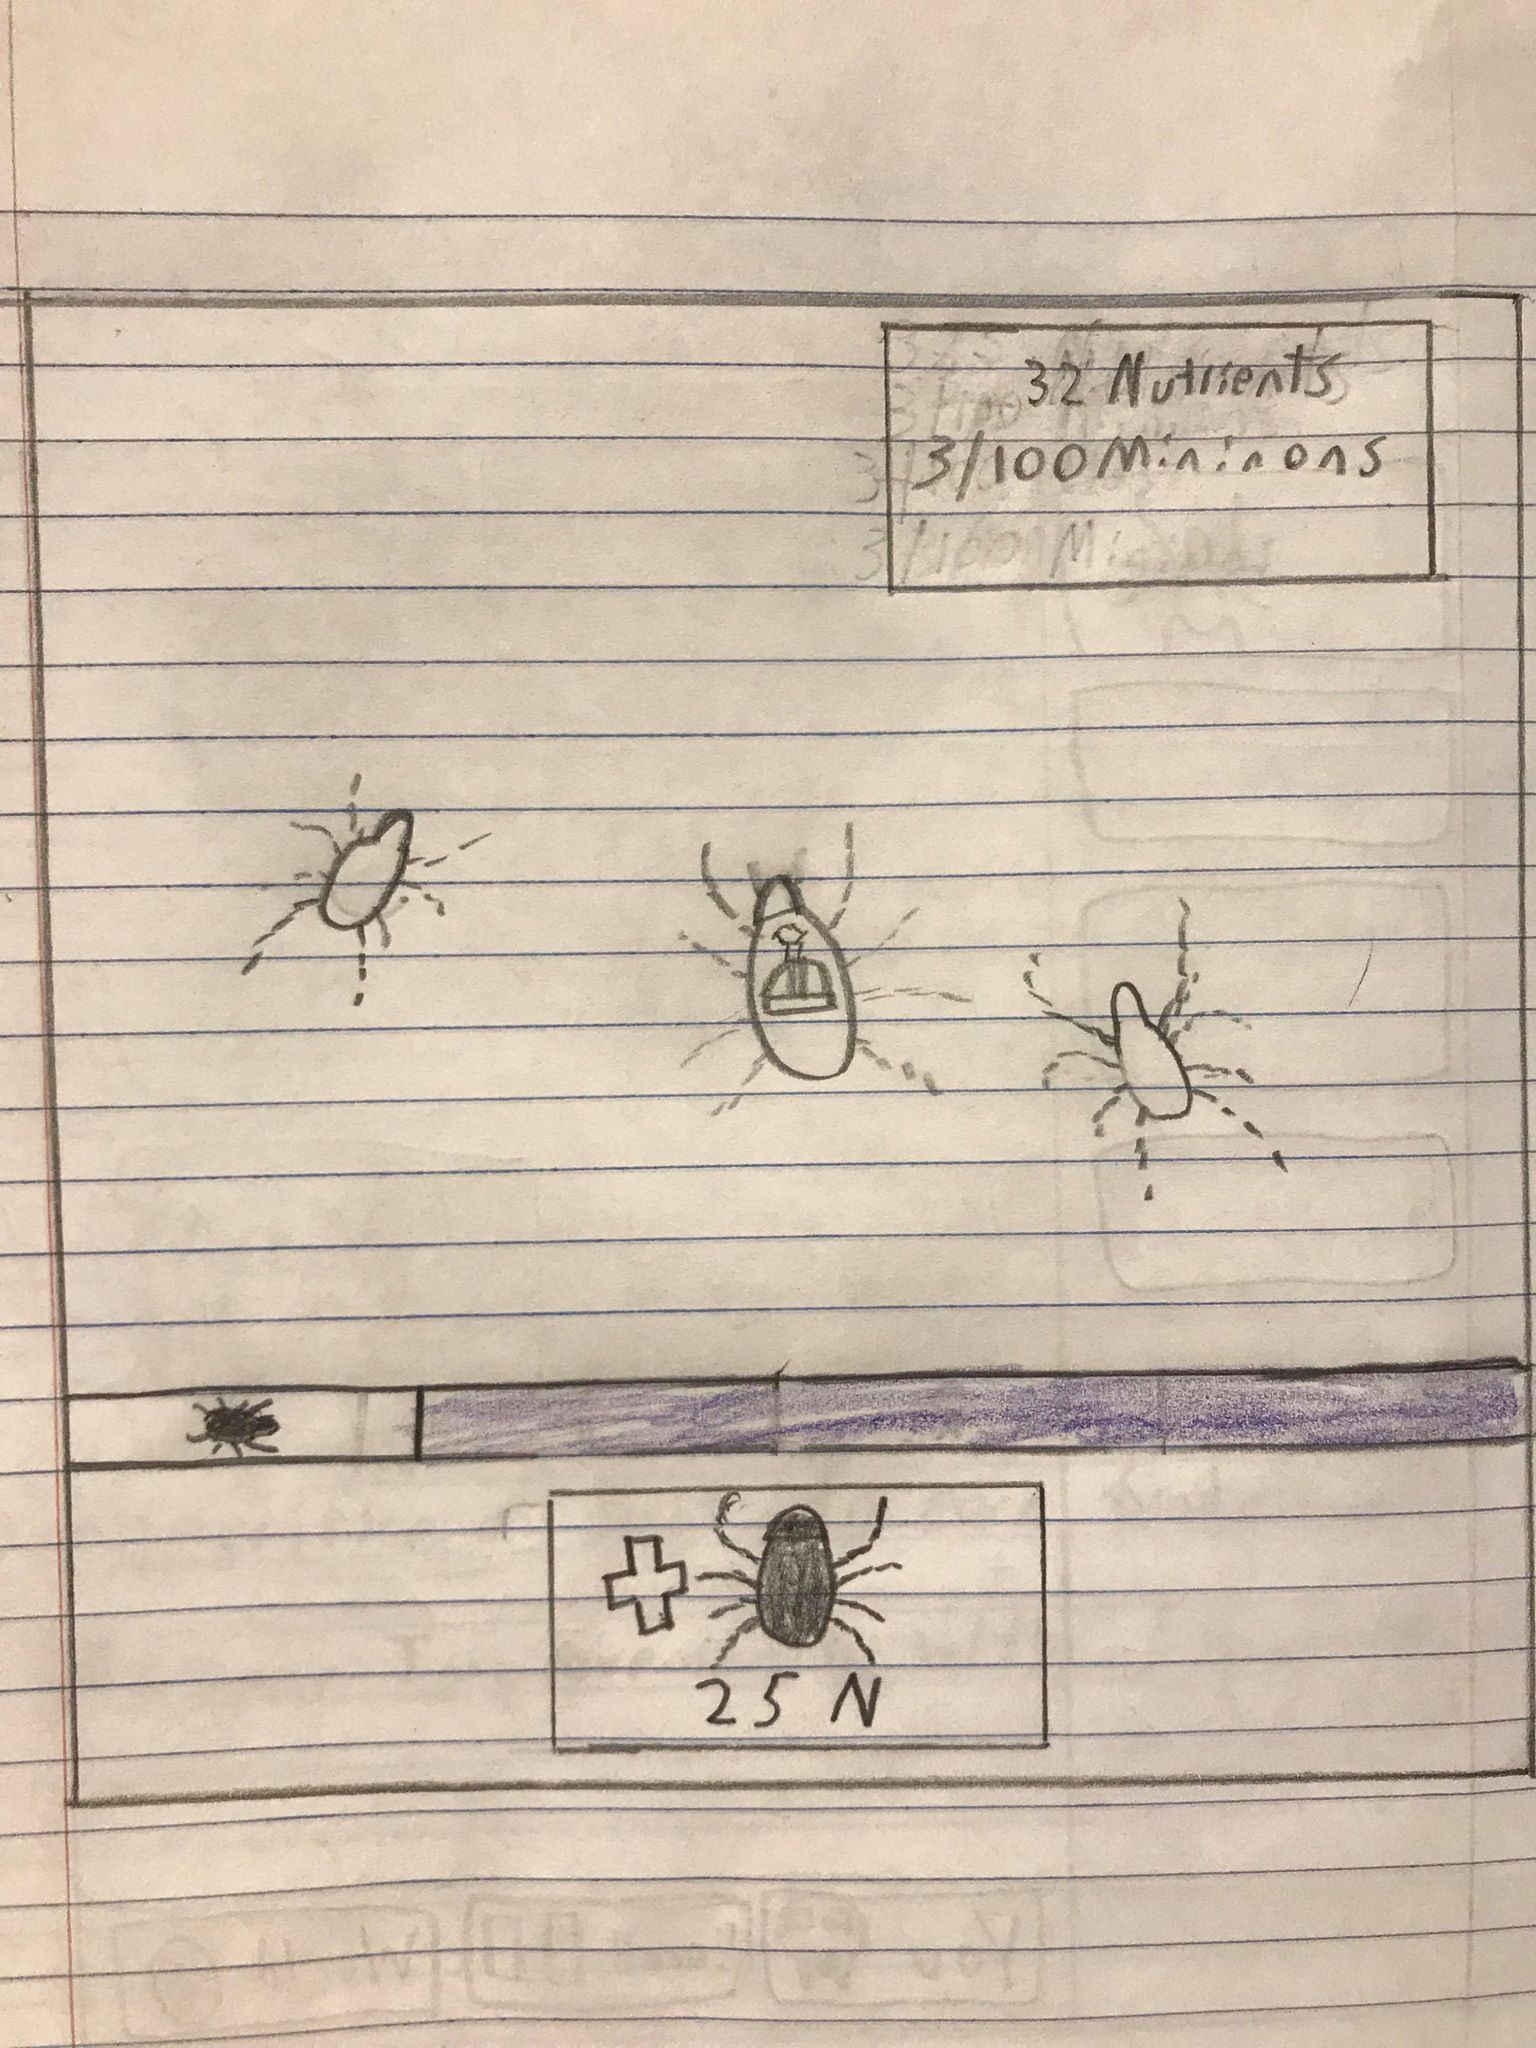 32 Nutrients
3/100 Mininions
25 N